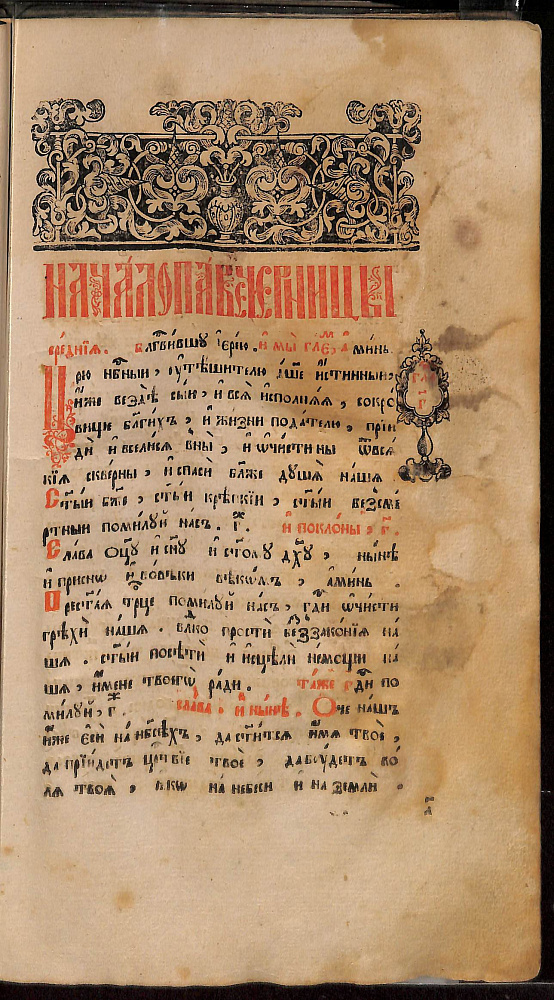 НАЧА́ЛО ПАВЕЧЕ́РНИЦЫ
сре́днїѧ. Бл҃гви́вшꙋ і҆ере́ю. и҆ мы̀ гл҃е, а҆ми́нь.
Ц҃рю нбⷭ҇ный, ᲂу҆тѣ́шителю дш҃е и҆́стинный,
и҆́же вездѣ̀ сы́й, и҆ всѧ̀ и҆сполнѧ́ѧ, сокро́
вище бл҃ги́хъ, и҆ жи́зни пода́телю, прїи
дѝ и҆ всели́сѧ в ны̀, и҆ ѡ҆чи́сти ны̀ ѿ всѧ́
кїѧ скве́рны, и҆ спасѝ бл҃же дꙋ́шѧ на́шѧ.
Ст҃ы́й бж҃е, ст҃ы́й крѣ́пкїй, ст҃ы́й безсме́
ртный поми́лꙋй на́съ. г҃. и҆ покло́ны, г҃.
Сла́ва ѻ҆ц҃ꙋ̀ и҆ сн҃ꙋ и҆ ст҃о́мꙋ дх҃ꙋ, и҆ ны́нѣ
и҆ при́снѡ и҆ во́вѣки вѣкѡ́мъ, а҆ми́нь.
Прест҃а́ѧ трⷪ҇це поми́лꙋй на́съ, гдⷭ҇и ѡ҆чи́сти
грѣхѝ на́шѧ. влⷣко простѝ беззако́нїѧ на́
шѧ. ст҃ы́й посѣтѝ и҆ и҆сцѣлѝ не́мощи на́
шѧ, и҆́мене твоегѡ̀ ра́ди. та́же гдⷭ҇и по
ми́лꙋй, г҃. сла́ва, и҆ ны́нѣ. Ѻ҆́че на́шъ
и҆́же є҆сѝ на нб҃сѣ́хъ, да ст҃и́тсѧ и҆́мѧ твоѐ,
да прїи́детъ црⷭ҇твїе твоѐ, да бꙋ́детъ во́
лѧ твоѧ̀, ꙗ҆́кѡ на небесѝ и҆ на землѝ.